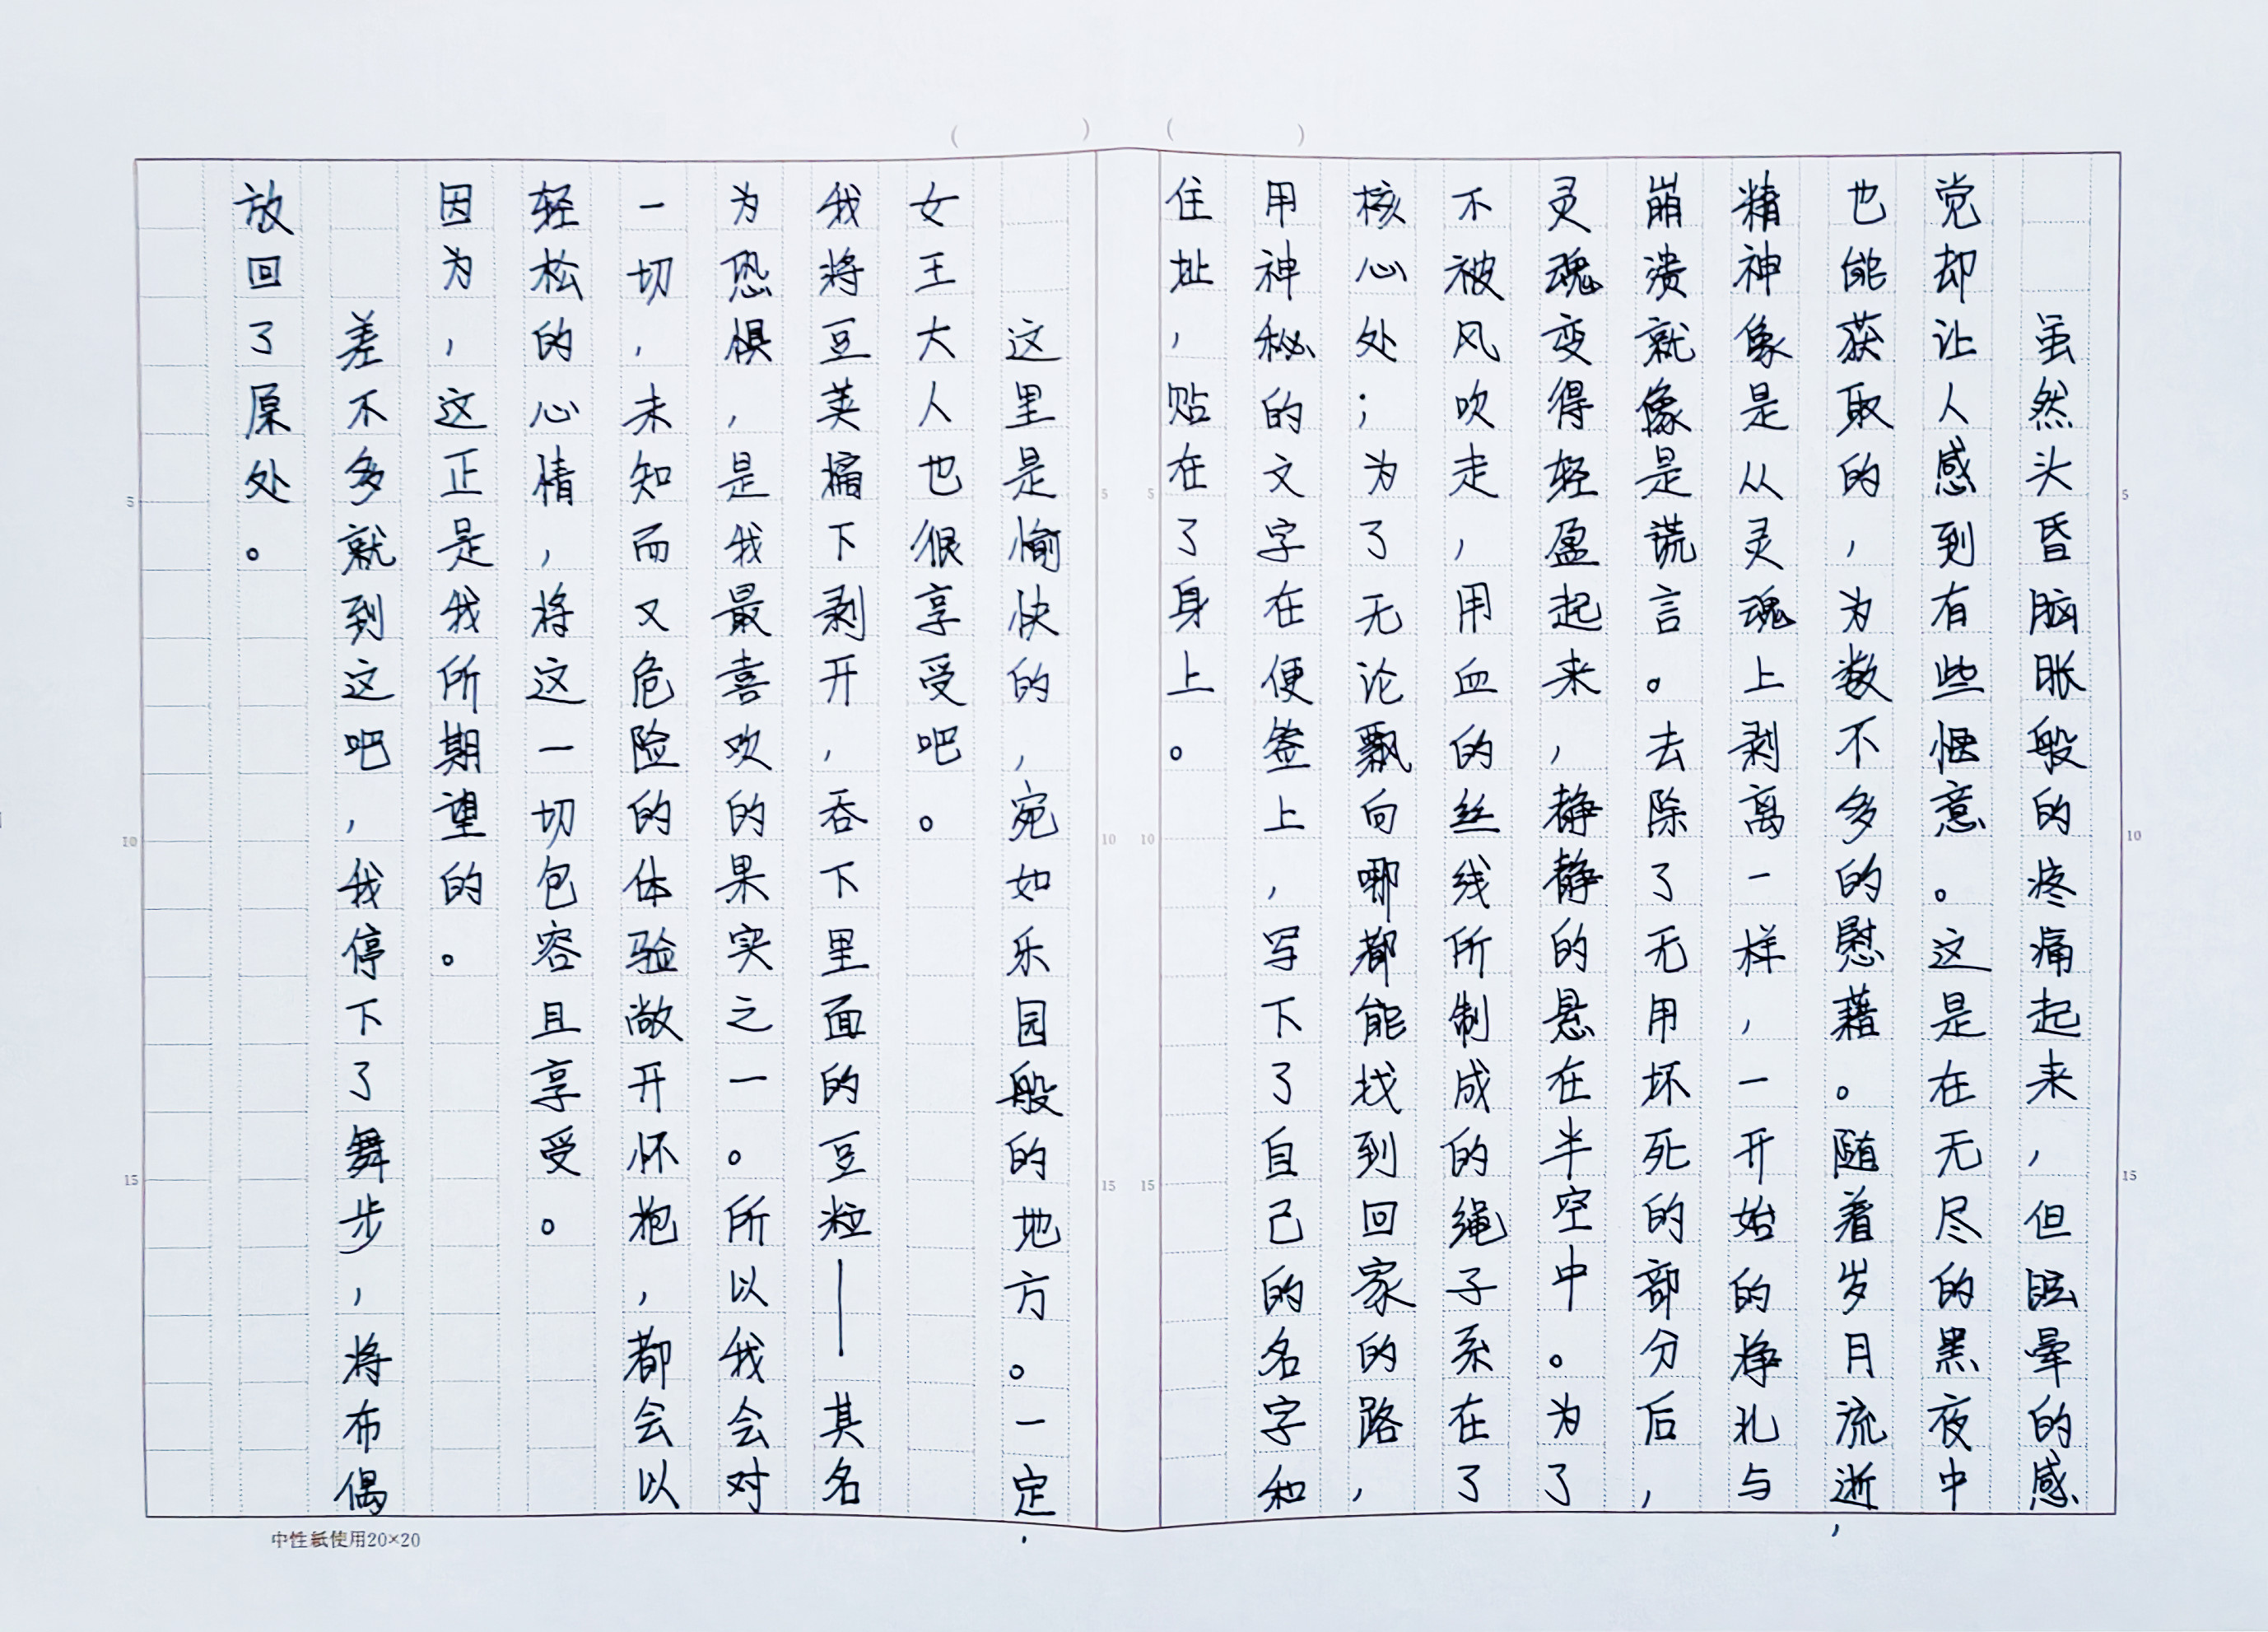 虽然头昏脑胀般的疼痛起来，但眩晕的感
觉却让人感到有些惬意。这是在无尽的黑夜中
也能获取的，为数不多的慰藉。随着岁月流逝，
精神像是从灵魂上剥离一样，一开始的挣扎与
崩溃就像是谎言。去除了无用坏死的部分后，
灵魂变得轻盈起来，静静的悬在半空中。为了
不被风吹走，用血的丝线所制成的绳子系在了
核心处；为了无论飘向哪都能找到回家的路，
用神秘的文字在便签上，写下了自己的名字和
住址，贴在了身上。
这里是愉快的，宛如乐园般的地方。一定，
女王大人也很享受吧。
我将豆荚摘下剥开，吞下里面的豆粒——其名
为恐惧，是我最喜欢的果实之一。所以我会对
一切，未知而又危险的体验敞开怀抱，都会以
轻松的心情，将这一切包容且享受。
因为，这正是我所期望的。
差不多就到这吧，我停下了舞步，将布偶
放回了原处。
5
10
15
5
10
15
5
10
15
中性紙使用20×20